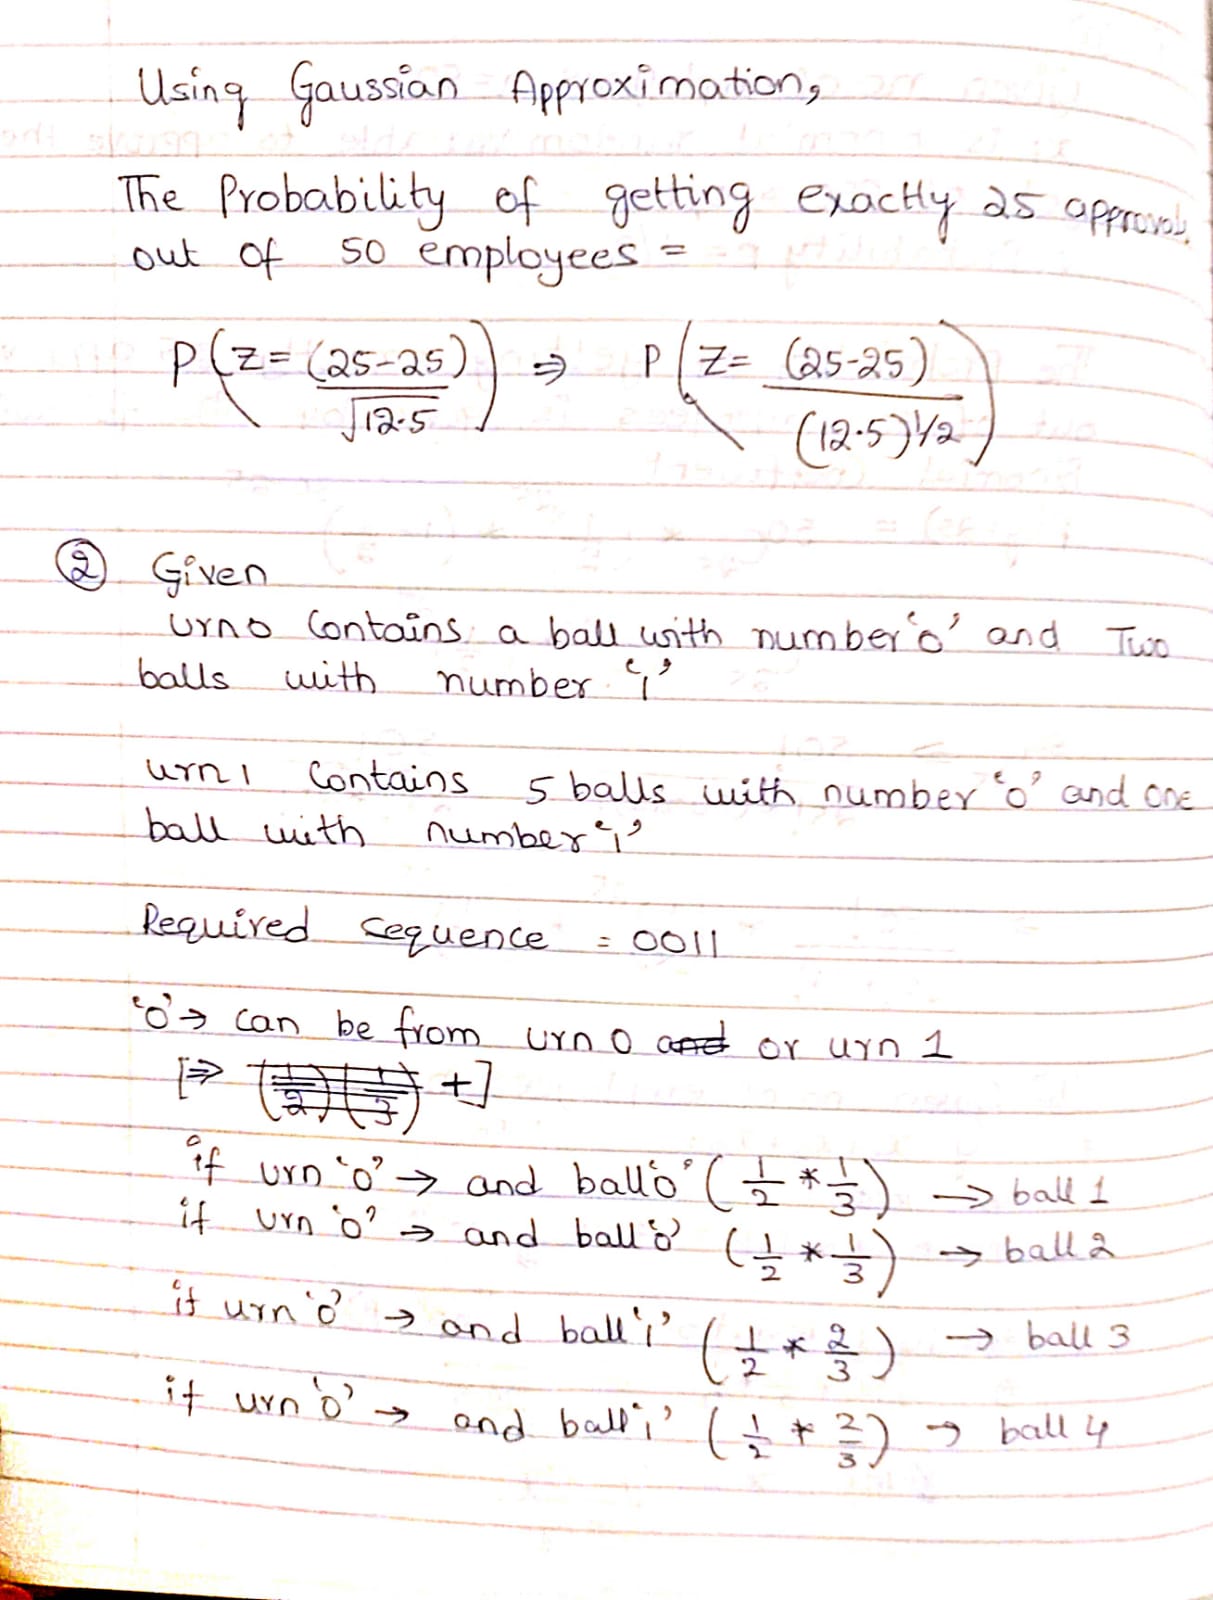 Using Gaussian Approximation,
The Probability of getting exactly 25 approvals
out of 50 employees =
P(Z= (25-25)/√12.5) ⇒ P(Z= (25-25)/(12.5)1/2)
② Given
urn0 contains a ball with number '0' and Two
balls with number '1'
urn1 contains 5 balls with number '0' and one
ball with number '1'
Required sequence = 0011
'0' → can be from urn 0 and or urn 1
[⇒ (1/2)(1/3) +]
if urn '0' → and ball '0' (1/2 * 1/3) → ball 1
if urn '0' → and ball '0' (1/2 * 1/3) → ball 2
if urn '0' → and ball '1' (1/2 * 2/3) → ball 3
if urn '0' → and ball '1' (1/2 * 2/3) → ball 4